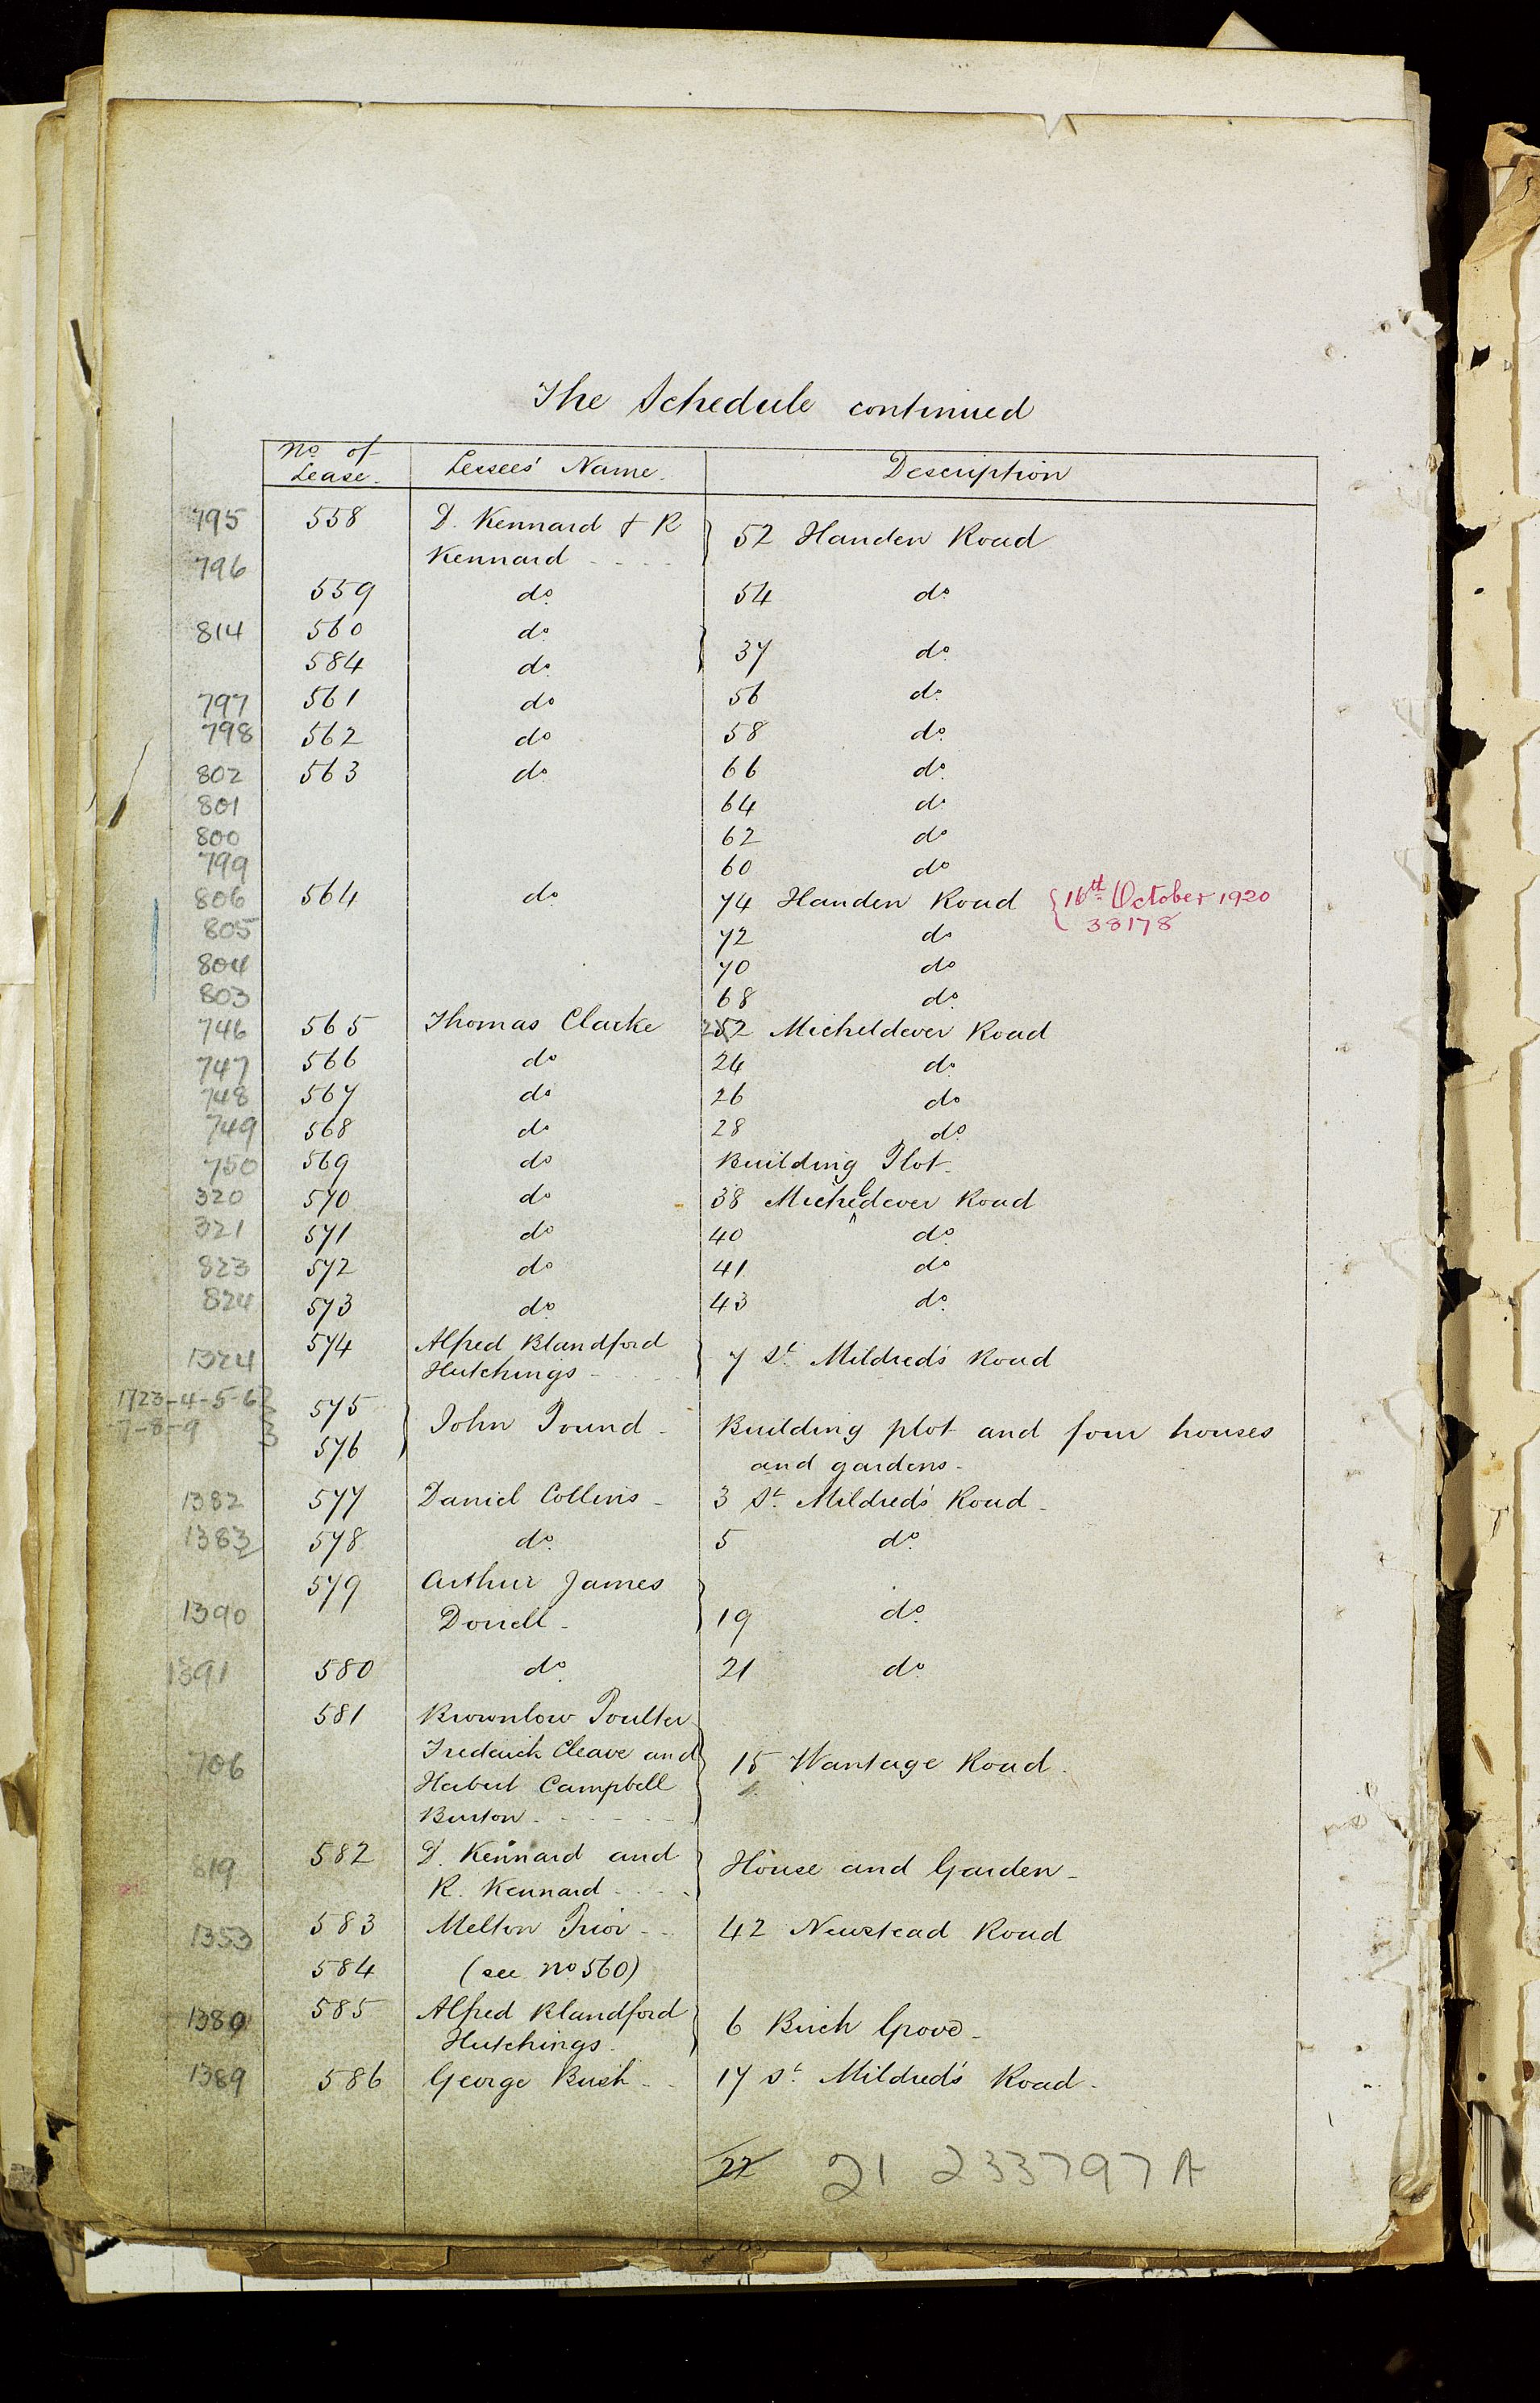 The Schedule continued
No. of Lease. Lessees' Name. Description
795 558 D. Kennard & R
796 Kennard - - - - } 52 Handen Road
559 do. 54 do.
814 560 do.
584 do. } 37 do.
797 561 do 56 do.
798 562 do 58 do.
802 563 do 66 do.
801 64 do
800 62 do
799 60 do
806 564 do 74 Handen Road { 16th October 1920
33178
805 72 do
804 70 do
803 68 do
746 565 Thomas Clarke 22 Micheldever Road
747 566 do 24 do
748 567 do 26 do
749 568 do 28 do
750 569 do Building Plot-
320 570 do 38 Micheldever Road
321 571 do 40 do
823 572 do 41 do
824 573 do 43 do
574 Alfred Blandford
1324 Hutchings - - - } 7 St. Mildred's Road
1723-4-5-6
-7-8-9
575
576 } John Pound - Building plot and four houses
and gardens-
1382 577 Daniel Collins - 3 St. Mildred's Road-
1383 578 do. 5 do.
579 Arthur James
1390 Dorrell - } 19 do.
1391 580 do. 21 do.
581 Brownlow Poulter
Frederick Cleave and
706 Herbert Campbell } 15 Wantage Road.
Burton - - - -
582 D. Kennard and
819 R. Kennard - - - } House and Garden-
1353 583 Melton Prior - - 42 Newstead Road
584 (see No 560)
585 Alfred Blandford
1380 Hutchings. } 6 Birch Grove-
1389 586 George Bush - - 17 St. Mildred's Road-
22 21 233797A